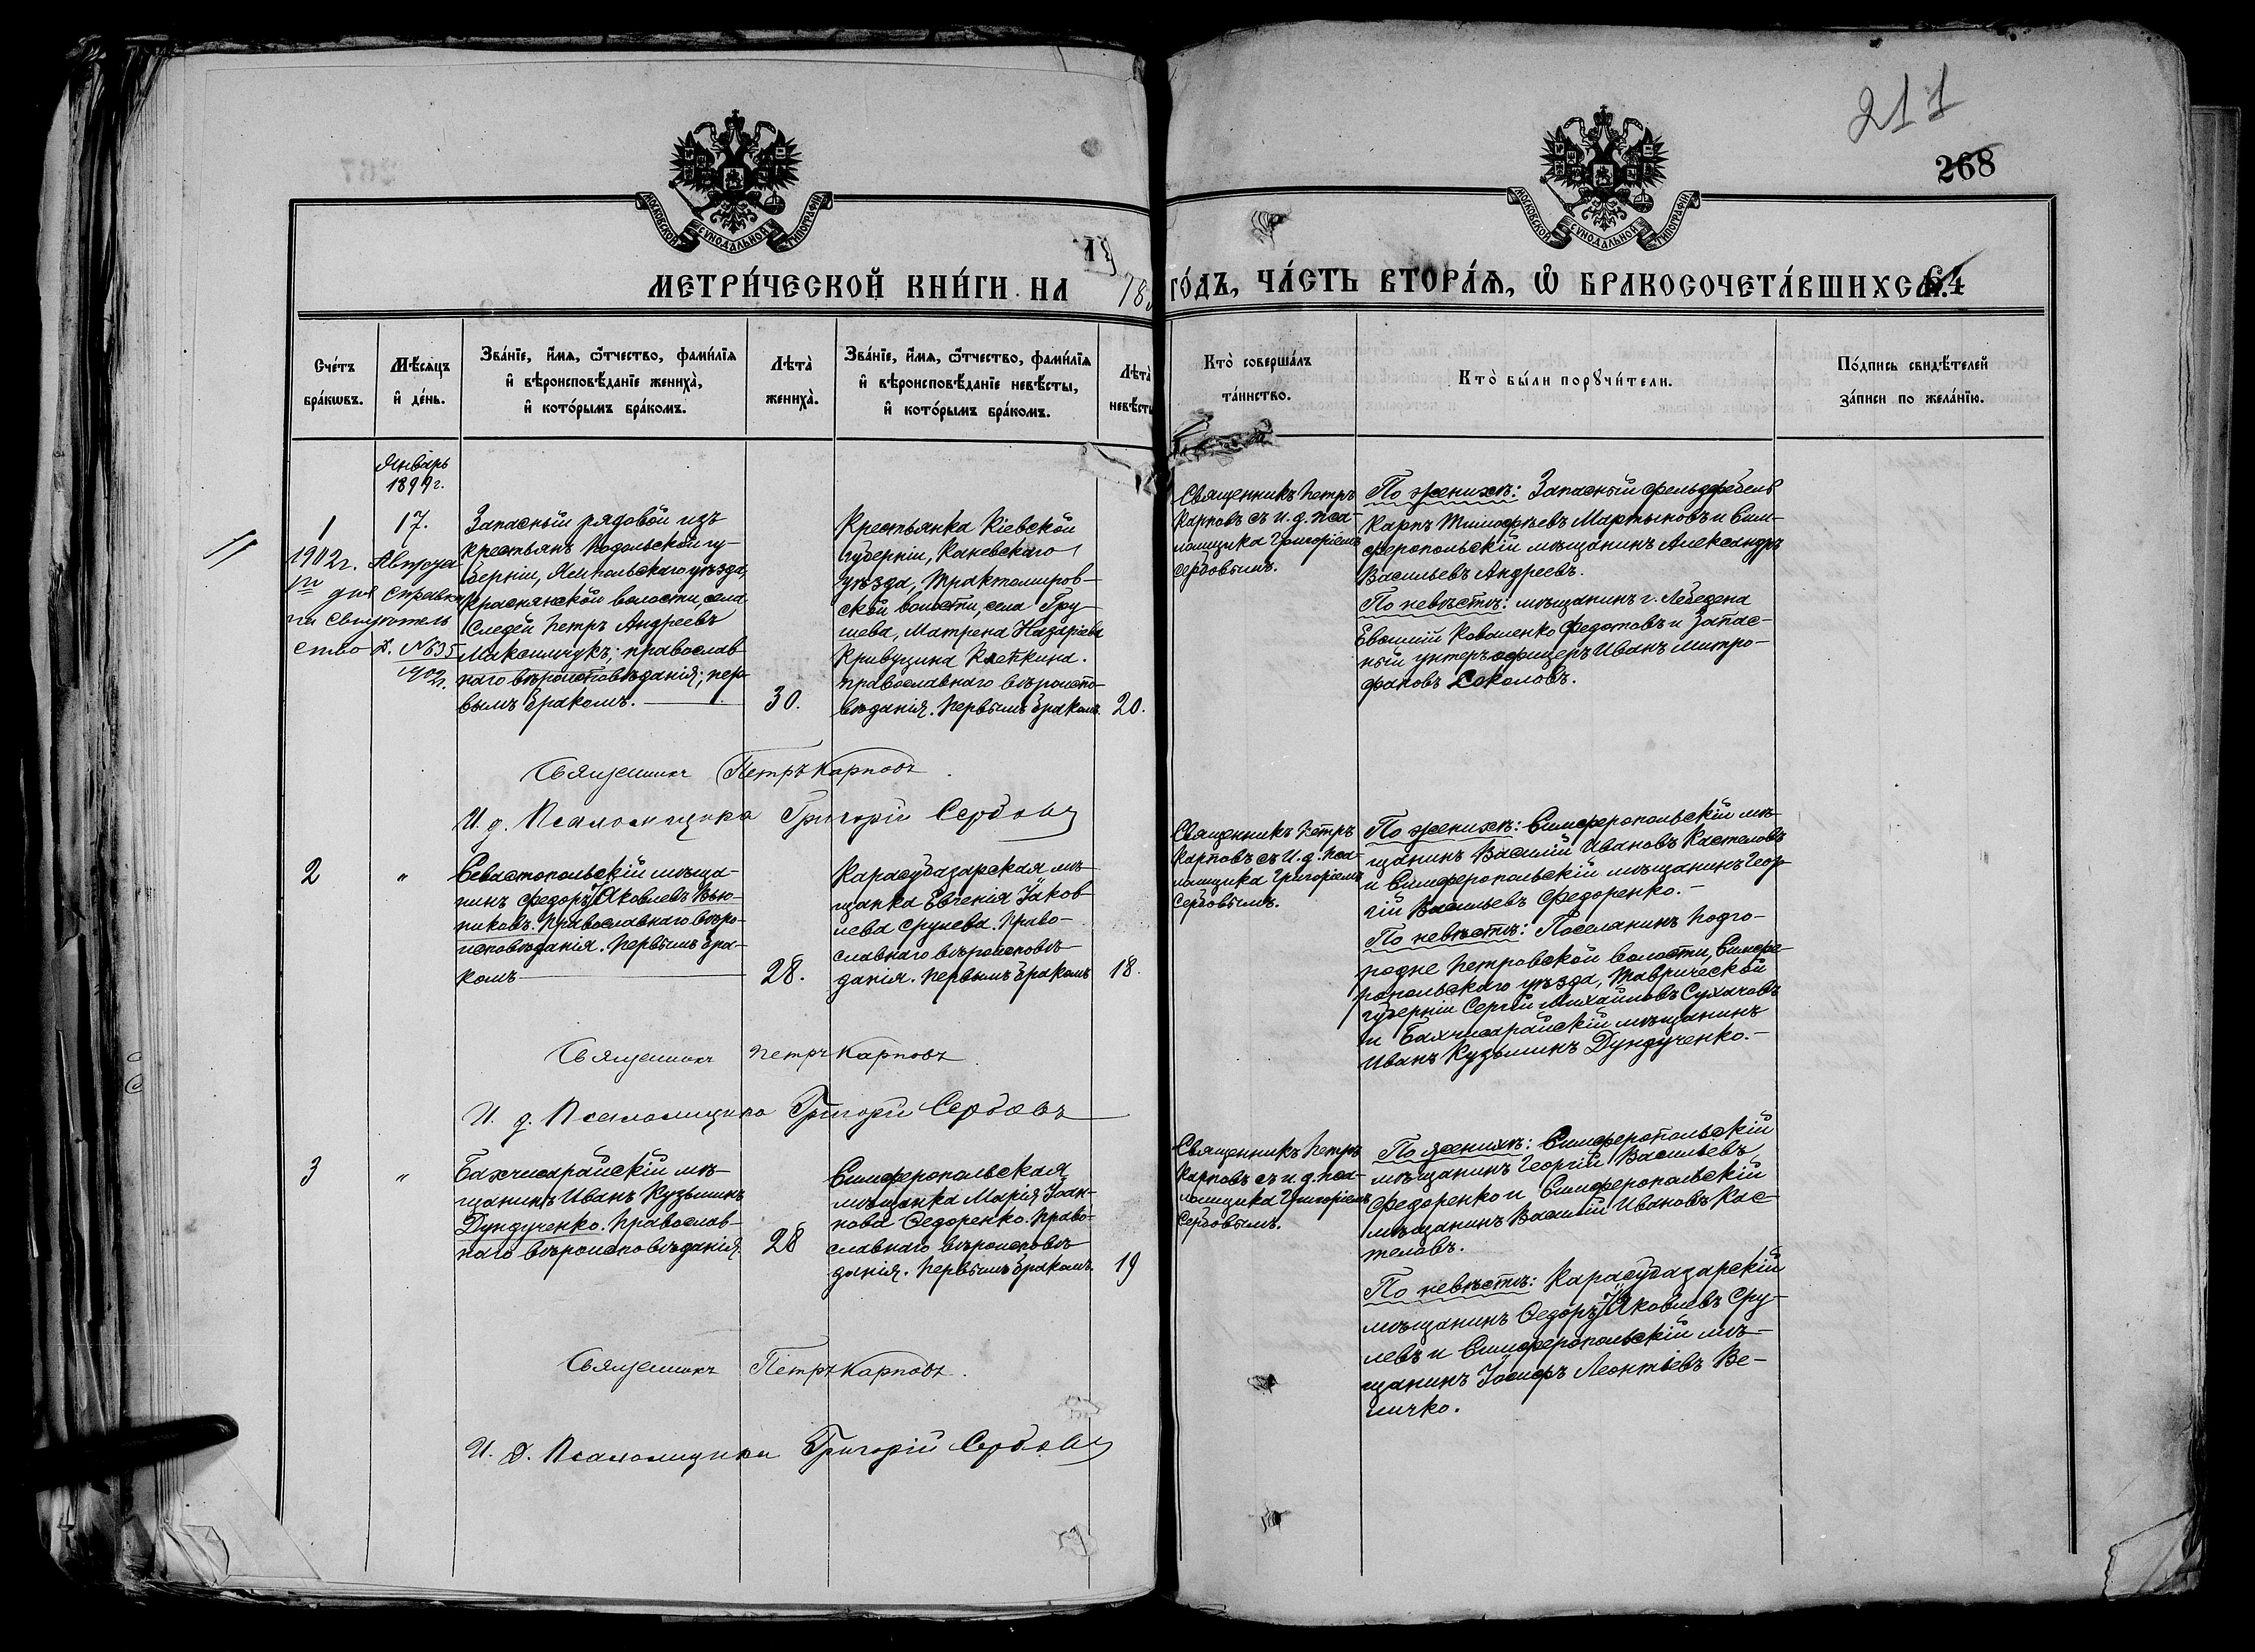 211
268
МОСКОВСКОЙ СѴНОДАЛЬНОЙ ТИПОГРАФІИ
МОСКОВСКОЙ СѴНОДАЛЬНОЙ ТИПОГРАФІИ
МЕТРИ́ЧЕСКОЙ КНИ́ГИ НА
ГО́ДЪ, ЧА́СТЬ ВТОРА́Ѧ, Ѿ БРАКОСОЧЕТА́ВШИХСѦ.
64
Сче́тъ
бра́кѡвъ.
Мѣ́сѧцъ
и҆ де́нь.
Зва́нїе, и҆́мѧ, ѻ҆́тчество, фами́лїѧ
и҆ вѣроисповѣ́данїе жениха̀,
и҆ кото́рымъ бра́комъ.
Лѣта̀
жениха̀.
Зва́нїе, и҆́мѧ, ѻ҆́тчество, фами́лїѧ
и҆ вѣроисповѣ́данїе невѣ́сты,
и҆ кото́рымъ бра́комъ.
Лѣта̀
невѣ́сты
Кто̀ соверша́лъ
та́инство.
Кто̀ бы́ли порꙋчи́тели.
По́дпись свидѣ́телей
за́писи по жела́нїю.
Январь
1899 г.
1
17.
1902 г. Августа
дня справка
Свидѣтель
ство д. №635
902 г.
Запасный рядовой изъ
крестьянъ Подольской гу-
берніи, Ямпольскаго уѣзда,
Краснянской волости, села
Следей Петръ Андреевъ
Максимчукъ; православ
наго вѣроисповѣданія; пер
вымъ бракомъ.
30.
Крестьянка Кіевской
губерніи, Каневскаго
уѣзда, Трактомиров-
ской волости, села Гру-
шева, Матрена Назаріева
Кривущина Клепкина.
православнаго вѣроиспо-
вѣданія. Первымъ бракомъ.
20.
Священникъ Петръ
Карповъ съ и. д. пса-
ломщика Григоріемъ
Сербовымъ.
По женихѣ: Запасный фельдфебель
Карпъ Тимофѣевъ Мартыновъ и Сим-
феропольскій мѣщанинъ Александръ
Васильевъ Андреевъ.
По невѣстѣ: мѣщанинъ г. Лебедена
Евфимій Коваленко Федотовъ и Запас-
ный унтеръ офицеръ Иванъ Митро-
фановъ Соколовъ.
Священникъ Петръ Карповъ
И. д. Псаломщика Григорій Сербовъ
2
"
Севастопольскій мѣща-
нинъ Федоръ Яковлевъ Вью-
никовъ. Православнаго вѣро-
исповѣданія. Первымъ бра-
комъ
28.
Карасубазарская мѣ-
щанка Евгенія Іаков-
лева Срулева. Право-
славнаго вѣроисповѣ-
данія. Первымъ бракомъ
18.
Священникъ Петръ
Карповъ съ И. д. пса-
ломщика Григоріемъ
Сербовымъ.
По женихѣ: Симферопольскій мѣ-
щанинъ Василій Ивановъ Кастеловъ
и Симферопольскій мѣщанинъ Геор-
гій Васильевъ Федоренко.-
По невѣстѣ: Поселанинъ Подго-
родне Петровской волости, Симфе-
ропольскаго уѣзда, Таврической
губерніи Сергѣй Михайловъ Сухачовъ
и Бахчисарайскій мѣщанинъ
Иванъ Кузьминъ Дундученко.-
Священникъ Петръ Карповъ
И. д. Псаломщика Григорій Сербовъ
3
"
Бахчисарайскій мѣ-
щанинъ Иванъ Кузьминъ
Дундученко. Православ-
наго вѣроисповѣданія
28
Симферопольская
мѣщанка Марія Іоан-
нова Ѳедоренко. Право-
славнаго вѣроисповѣ
данія. Первымъ бракомъ.
19
Священникъ Петръ
Карповъ съ и. д. пса-
ломщика Григоріемъ
Сербовымъ.
По женихѣ: Симферопольскій
мѣщанинъ Георгій Васильевъ
Федоренко и Симферопольскій
мѣщанинъ Василій Ивановъ Кас-
теловъ.
По невѣстѣ: Карасубазарскій
мѣщанинъ Ѳедоръ Яковлевъ Сру-
левъ и Симферопольскій мѣ-
щанинъ Іосифъ Леонтіевъ Ве-
личко.
Священникъ Петръ Карповъ.
И. д. Псаломщика Григорій Сербовъ